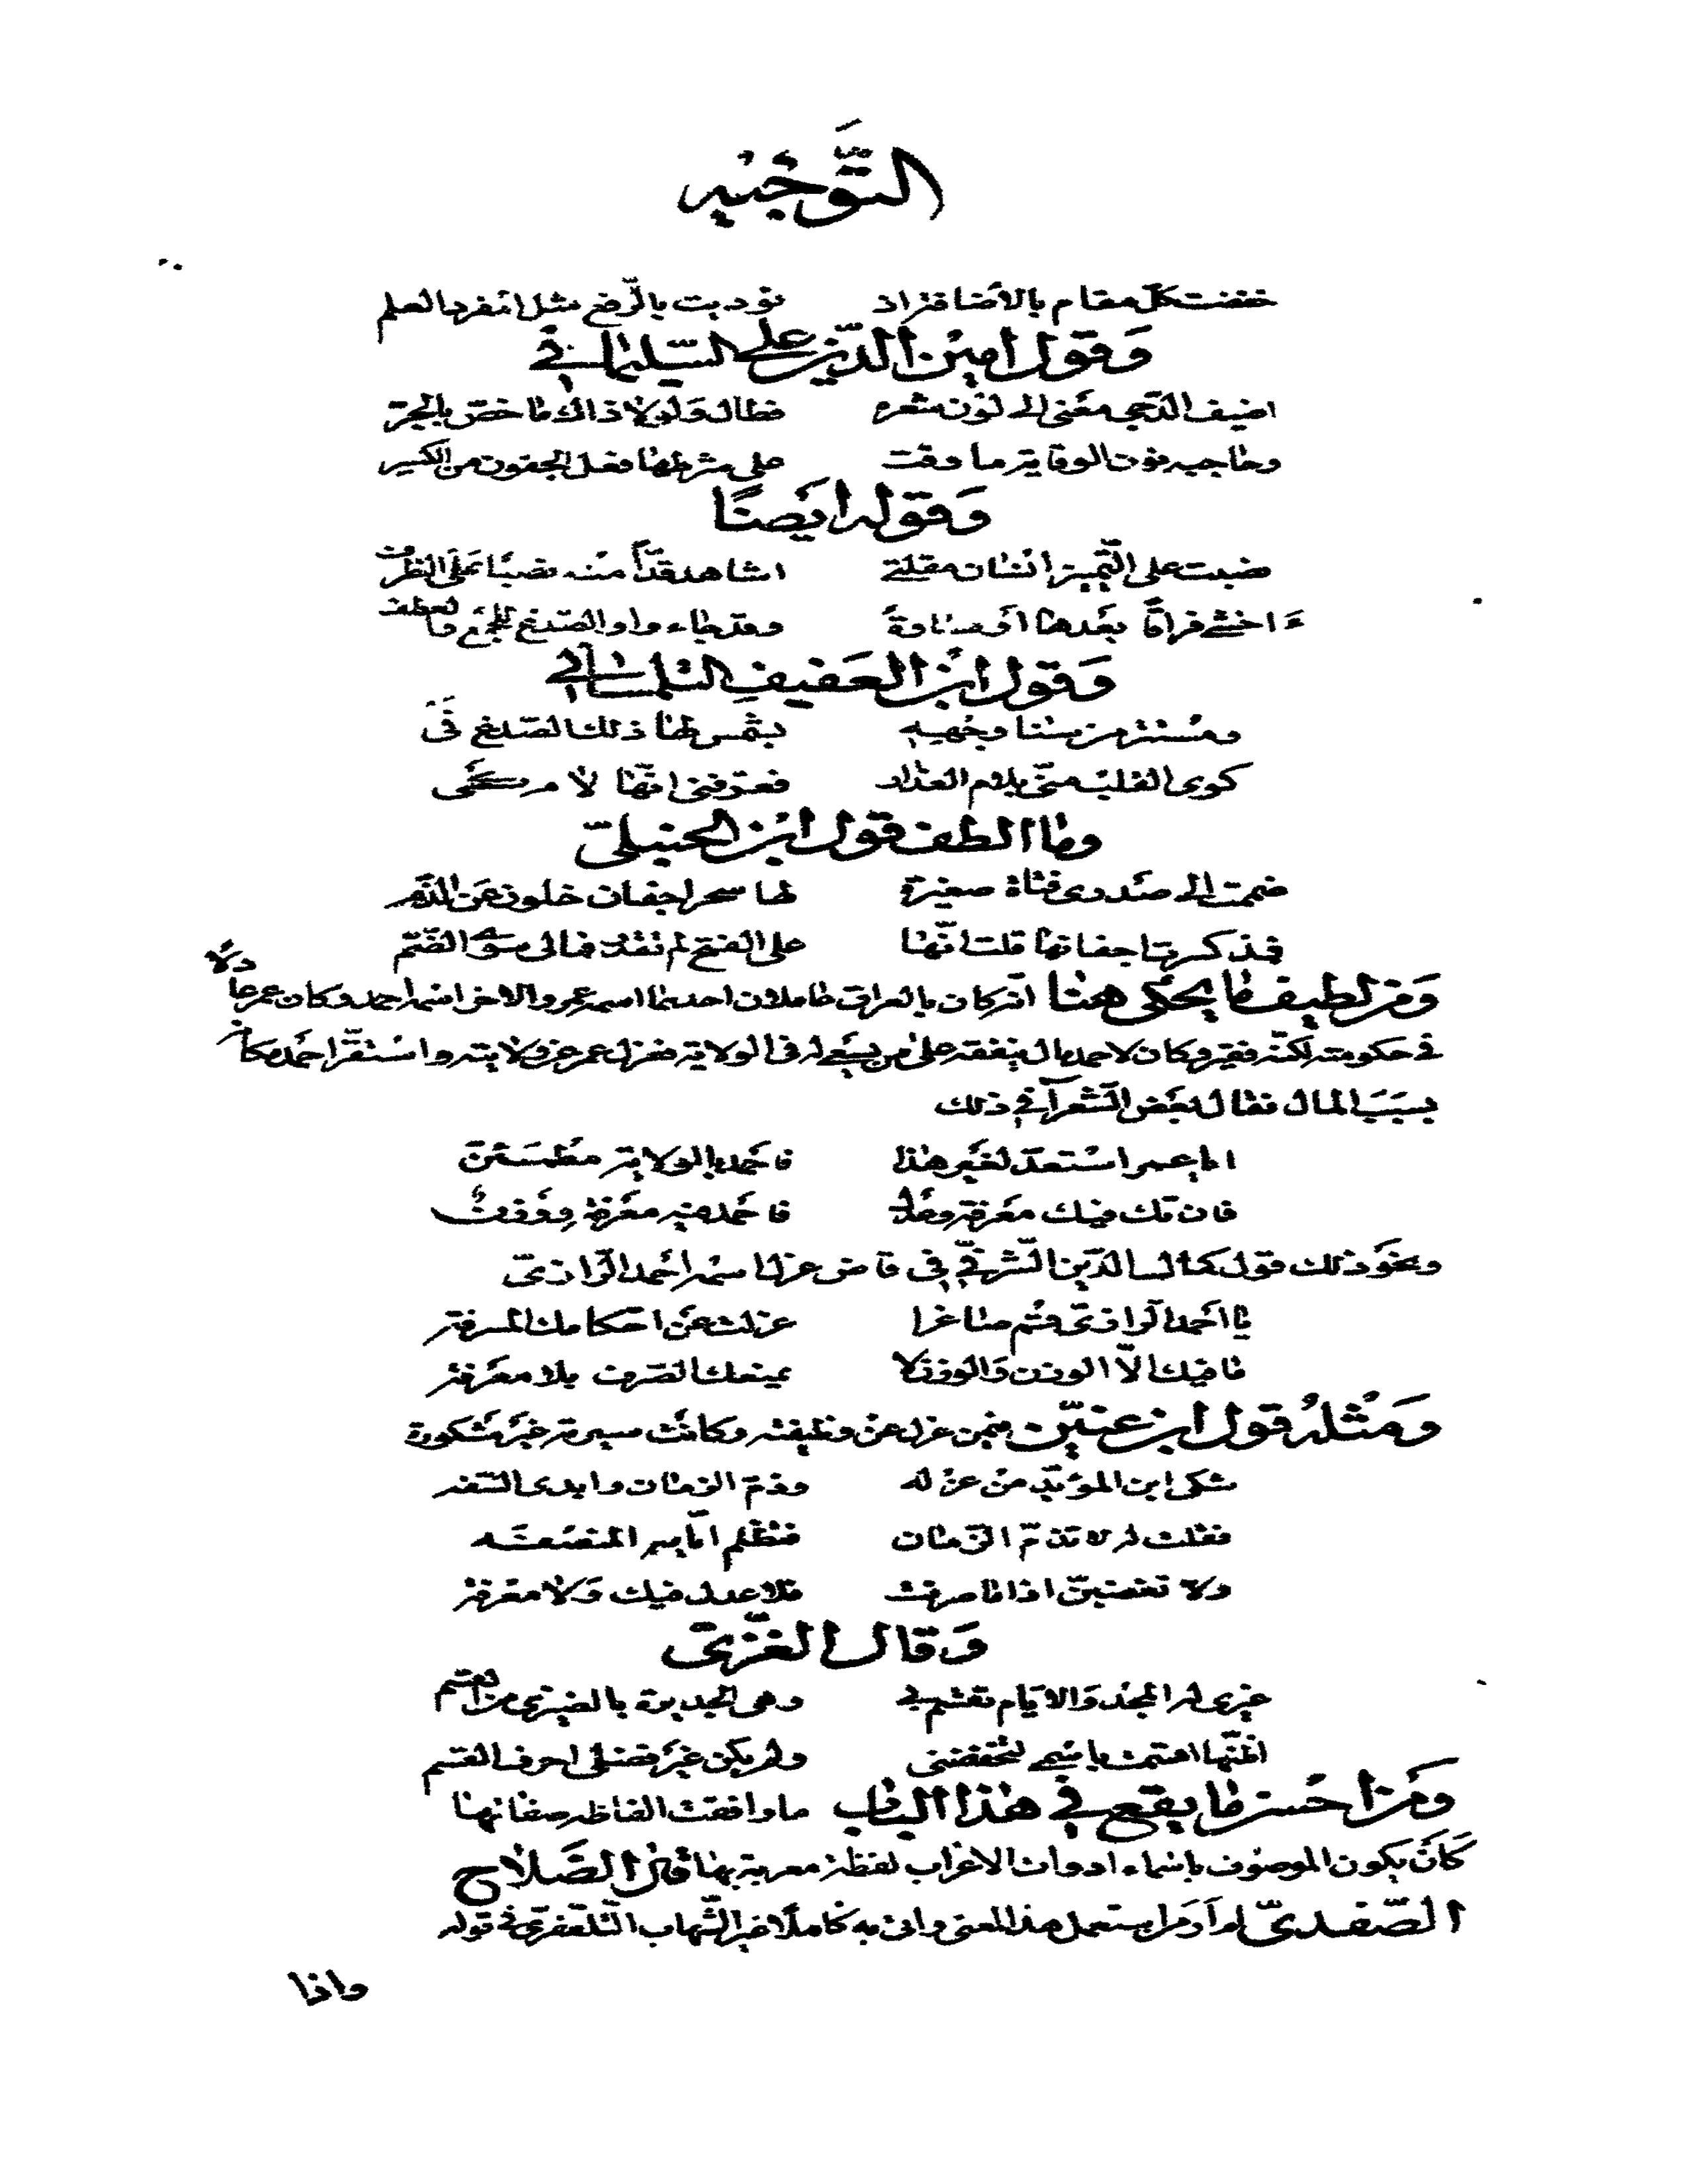 التَّوجيه
خفضت كلّ مقام بالأضافة اذ نوديت بالرّفع مثل المفرد العلم
وَقول امين الدّين علي السّليماني
اضيف الدّجى مَعنى الى لون شعره فطال وَلولا ذاك ما خصّ بالجرّ
وحاجبه نون الوقاية ما وقت على شرطها فعل الجفون من الكسر
وَقوله ايَضًا
نصبت على التّمييز انسان مقلتي اشاهد قدّاً منه نصبًا عَلى الظرف
ءَاخشى فراقًا بعَدها او مسافةً وقد جاء واو الصّدغ للجمع والعطف
وَقول ابن العَفيفِ التلمساني
ومُستتر من سنا وجهه بشمس لها ذلك الصّدغ فَي
كوى القلب منّي بلام العذار فعرّفني انّها لام كَي
وما الطف قول ابن الحنبليّ
ضممت الى صَدرى فتاة صغيرة لها سحر اجفان خلون عَن الذّم
فذكرتها اجفانها قلت انّها على الفتح لم تقدر فمالى سِوَى الضّم
وَمن لطيف ما يحكى هنا انه كان بالعراق عاملان احدهما اسمه عمر والاخر اسمه احمد وكان عمر عادلًا
في حكومته لكنّه فقير وكان لاحمد مال ينفقه على من يسعى له في الولاية فعزل عمر عن ولايته واسْتقرّ احمَد مكانه
بسَبَب المال فقال بعَض الشّعرآء في ذلك
ايا عمر اسْتعدّ لغَير هذا فاحَمد بالولاية مُطمَئنّ
فان تك فيك مَعرفة وعَدل فاحَمد فيه مَعْرفة وَوَزن
ونحوَ ذلك قول كمال الدّين الشّرفيّ فى قاض عزل اسمه احَمد الرّازىّ
يا احَمد الرّازىّ قُم صاغرا عزلت عَن احكامك المسرفة
ما فيك الّا الوزن وَالوزن لا يمنعك الصّرف بلا معَرفة
وَمثلُه قول ابن عنين فيمن عزل عَن وظيفته وكانت سيرته غَير مَشكورة
شكى ابن المؤيّد من عزله وذمّ الزمان وابدى السّفه
فقلت له لا تذمّ الزّمان فتظلم ايّامه المنصفَه
ولا تغضبنّ اذا ما صرفت فلا عدل فيك وَلا معَرفة
وَقال الغَزّىّ
غيرى له المجْد وَالايّام تقسم لي وهى الجديرة بالضيزى من القسم
اظنّها اهتمت باسْمي لتخفضنى ولم يكن غَير فضلى احرف القسم
وَمن احسَن ما يقع في هذا الباب ما وافقت الفاظه صفاتها
كَأن يكون الموصوف باسْماء ادوات الاعراب لفظة معربة بها قال الصَّلاح
الصّفديّ لم اَر مَن استعمل هذا المعنى واتى به كاملًا غير الشّهاب التّلعفرى في قوله
واذا